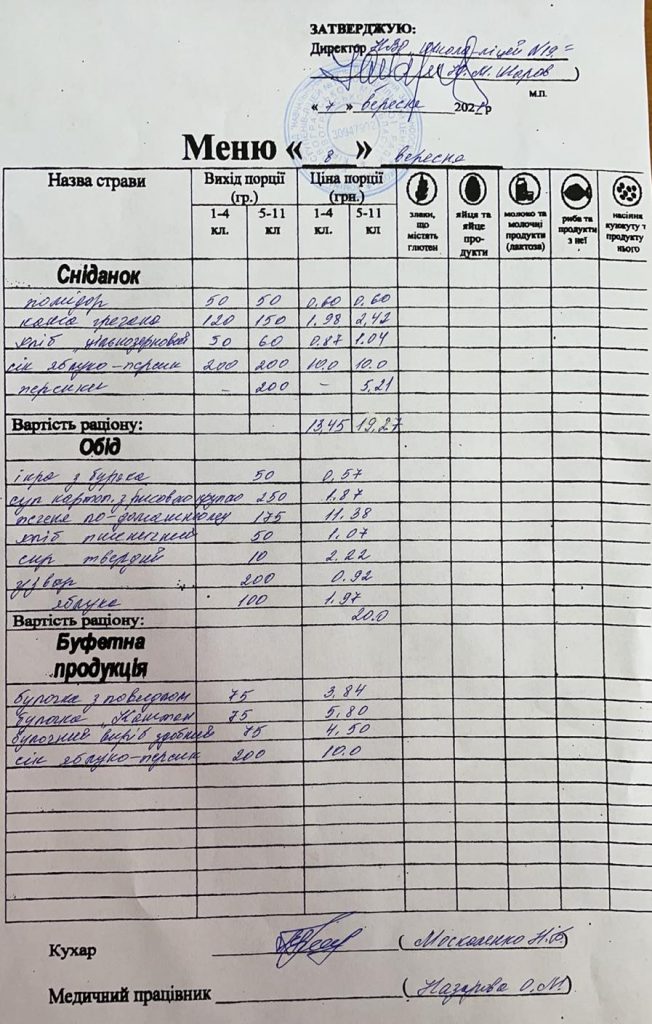 ЗАТВЕРДЖУЮ:
Директор НВО школа-ліцей №19
( Ю.М. Шаров )
м.п.
« 7 » вересня 2021р
30947992
Меню « 8 » вересня
Назва страви Вихід порції (гр.) Ціна порції (грн.) злаки, що містять глютен яйця та яйце про-дукти молоко та молочні продукти (лактоза) риба та продукти з неї насіння кунжуту т продукту нього
1-4 кл. 5-11 кл 1-4 кл. 5-11 кл
Сніданок
помідор 50 50 0,60 0,60
каша гречана 120 150 1.98 2,42
хліб цільнозерновой 50 60 0.87 1.04
сік яблуко-персик 200 200 10.0 10.0
персики - 200 - 5,21
Вартість раціону: 13,45 19,27
Обід
ікра з буряка 50 0,57
суп картоп. з рисовою крупою 250 1.87
печеня по-домашньому 175 11.38
хліб пшеничний 50 1.07
сир твердий 10 2.22
узвар 200 0.92
яблука 100 1.97
Вартість раціону: 20.0
Буфетна продукція
булочка з повидлом 75 3,84
булочка „Каштан 75 5,80
булочний виріб здобний 75 4,50
сік яблуко-персик 200 10.0
Кухар ( Москаленко Н.В. )
Медичний працівник ( Назарова О.М. )